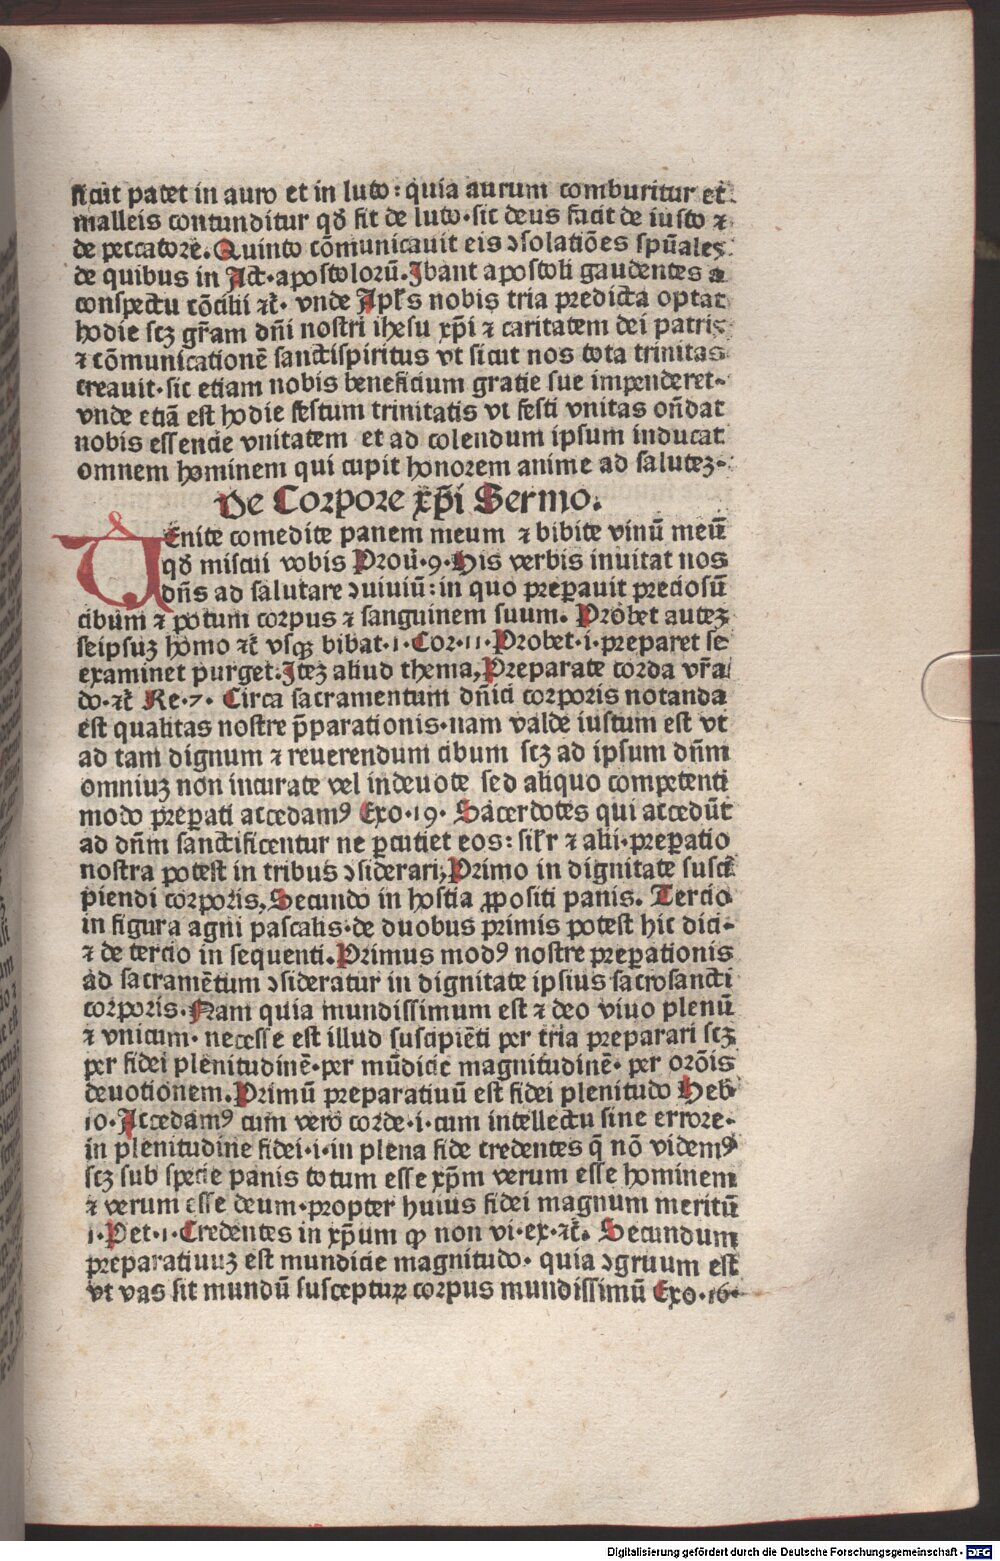 sicut patet in auro et in luto: quia aurum comburitur et
malleis contunditur qď fit de luto·sic deus facit de iusto ⁊
de peccatore. Quinto cōmunicauit eis ↄsolatiões spūales
de quibus in Act·apostolorū. Ibant apostoli gaudentes a
conspectu cōcilii ⁊c̄· vnde Apl's nobis tria predicta optat
hodie scꝫ gr̄am dn̄i nostri ihesu xp̄i ⁊ caritatem dei patris
⁊ cōmunicationē sanctispiritus vt sicut nos tota trinitas
creauit·sic etiam nobis beneficium gratie sue impenderet·
vnde etiā est hodie festum trinitatis vt festi vnitas on̄dat
nobis essencie vnitatem et ad colendum ipsum inducat
omnem hominem qui cupit honorem anime ad saluteꝫ·
De Corpore xp̄i Sermo.
VEnite comedite panem meum ⁊ bibite vinū meū
qď miscui vobis Prou̇·9·His verbis inuitat nos
dn̄s ad salutare ↄuiuiū: in quo preꝑauit preciosū
cibum ⁊ potum corpus ⁊ sanguinem suum. Probet auteꝫ
seipsuꝫ homo ⁊c̄ vsqꝫ bibat·1·Cor·11·Probet·i·preparet se
examinet purget. Iteꝫ aliud thema, Preparate corda vr̄a
do·⁊c̄ Re·7· Circa sacramentum dn̄ici corporis notanda
est qualitas nostre p̄parationis·nam valde iustum est vt
ad tam dignum ⁊ reuerendum cibum scꝫ ad ipsum dn̄m
omniuꝫ non incurate vel indeuote sed aliquo competenti
modo preꝑati accedamꝰ Exo·19· Sacerdotes qui accedūt
ad dn̄m sanctificentur ne ꝑcutiet eos: sil'r ⁊ alii·preꝑatio
nostra potest in tribus ↄsiderari, Primo in dignitate susci
piendi corporis, Secundo in hostia ꝓpositi panis. Tercio
in figura agni pascalis·de duobus primis potest hic dici·
⁊ de tercio in sequenti. Primus modꝰ nostre preꝑationis
ad sacramētum ↄsideratur in dignitate ipsius sacrosancti
corporis. Nam quia mundissimum est ⁊ deo viuo plenū
⁊ vnicum· necesse est illud suscipiēti per tria preparari scꝫ
per fidei plenitudinē·per mūdicie magnitudinē· per orōis
deuotionem. Primū preparatiuū est fidei plenitudo Heb
10·Accedamꝰ cum vero corde·i·cum intellectu sine errore·
in plenitudine fidei·i·in plena fide credentes q̄ nō videmꝰ
scꝫ sub specie panis totum esse xp̄m verum esse hominem
⁊ verum esse deum·propter huius fidei magnum meritū
1·Pet·1·Credentes in xp̄um ꝙ non vi·ex·⁊c̄. Secundum
preparatiuuꝫ est mundicie magnitudo· quia ↄgruum est
vt vas sit mundū susceptuꝝ corpus mundissimū Exo·16·
Digitalisierung gefördert durch die Deutsche Forschungsgemeinschaft - DFG